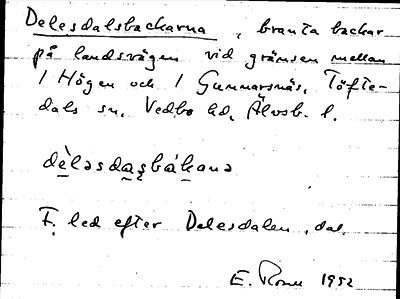 Delesdalsbackarna, branta backar
på landsvägen vid gränsen mellan
1 Högen och 1 Gunnarsnäs, Töfte-
dals sn, Vedbo hd, Älvsb. l.
dèləsdasbákana
F. led efter Delesdalen, dal.
E. 1952